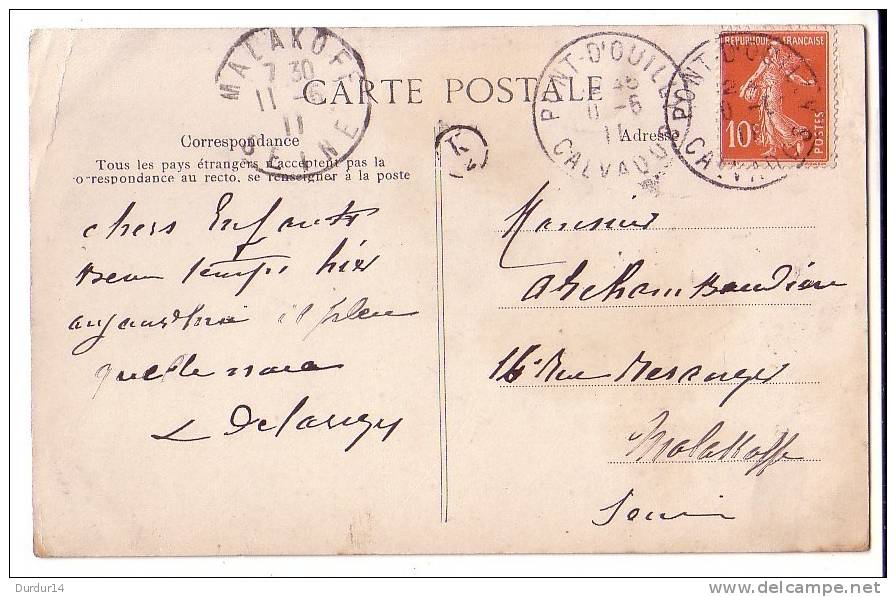 MALAKOFF
7 30
11 -6
11
SEINE
CARTE POSTALE
PONT-D'OUILLY
11 -6
11
CALVADOS
PONT-D'OUILLY
CALVADOS
REPUBLIQUE FRANCAISE
10c
POSTES
Correspondance
Tous les pays étrangers n'acceptent pas la
correspondance au recto, se renseigner à la poste
Adresse
chers Enfants
Beau temps hier
aujourdhui il pleu
quelle
L Delangy
Monsieur
16 Rue
Malakoff
Seine
Durdur14
www.delcampe.net